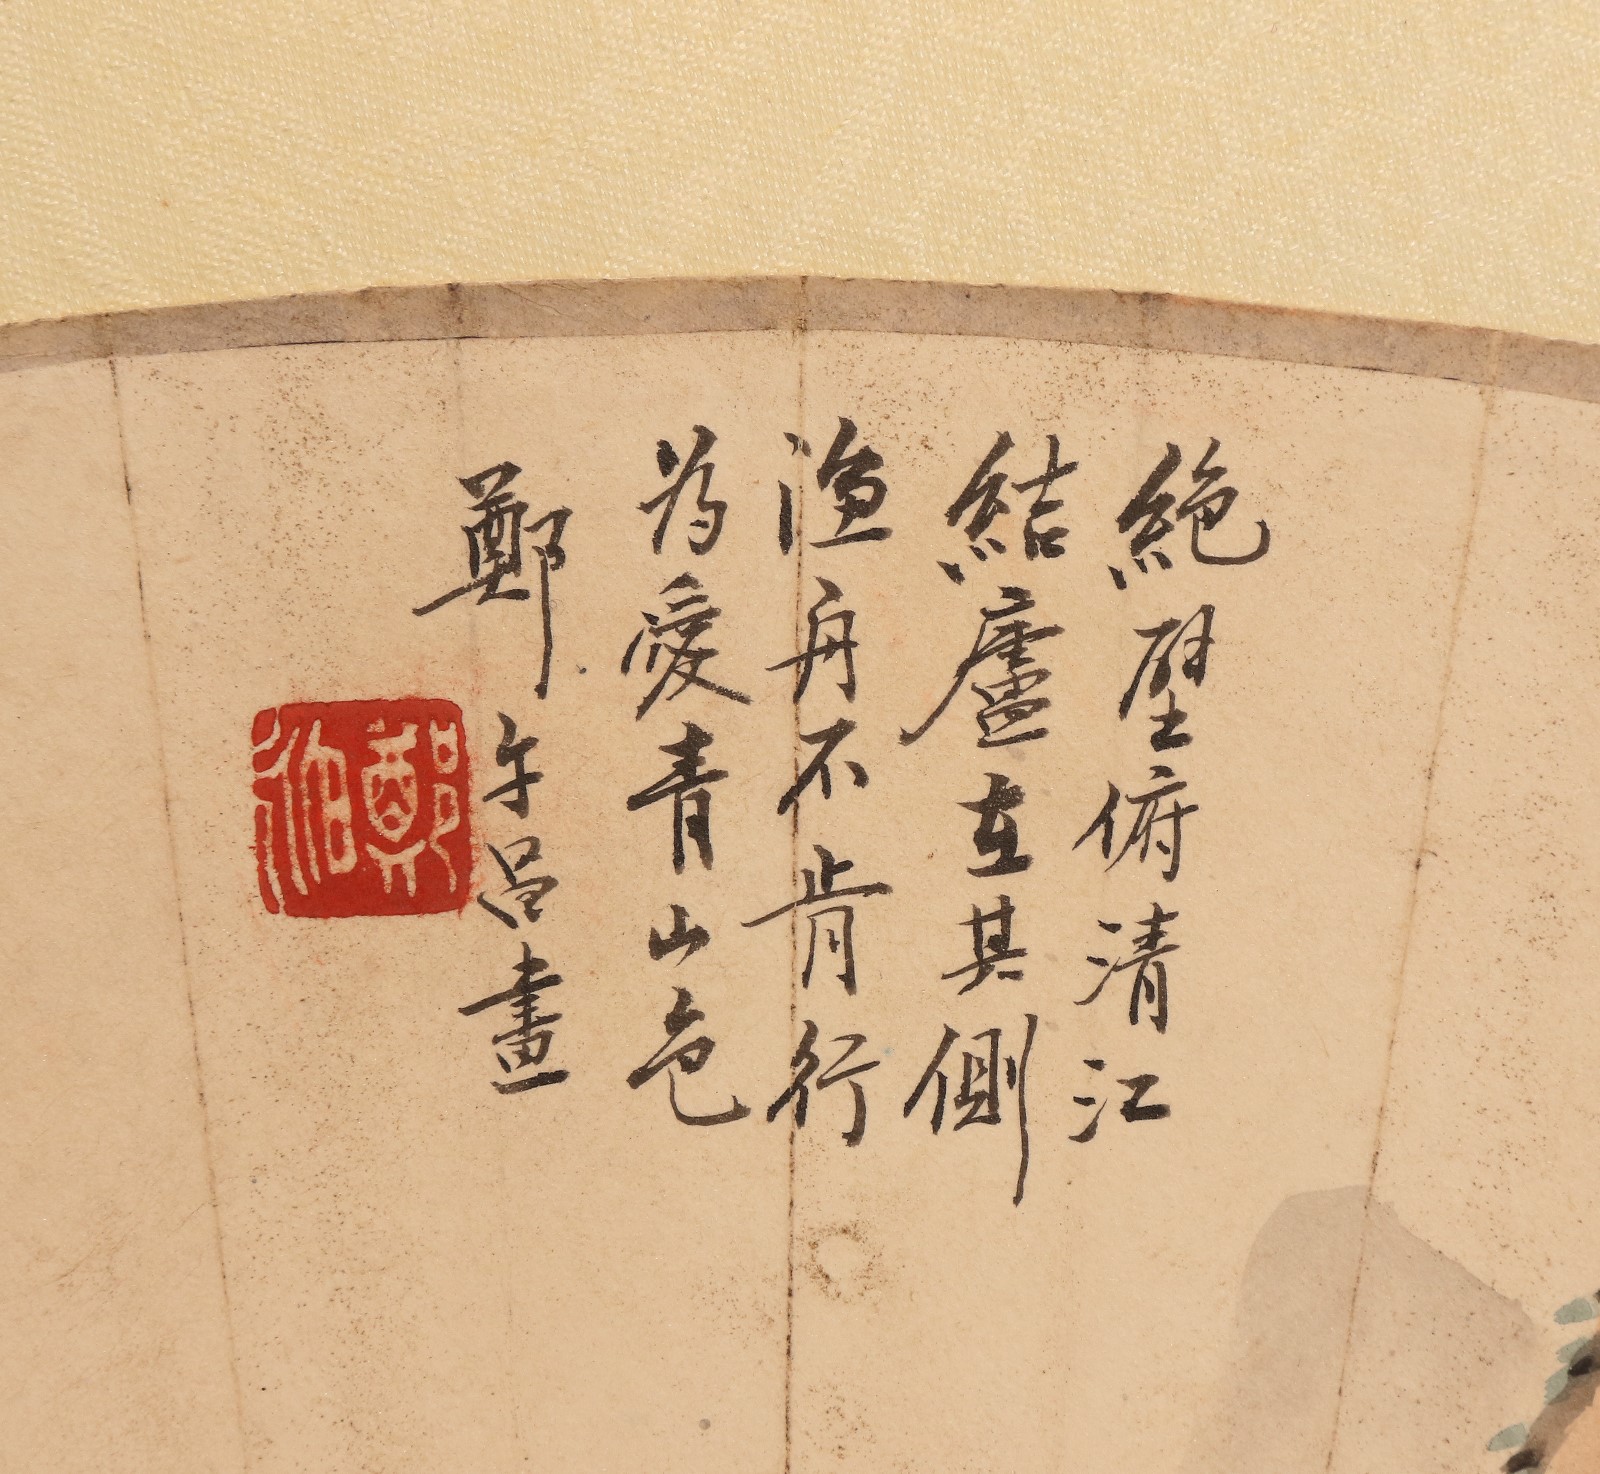 絶壁俯清江
結廬在其側
漁舟不肯行
為愛青山色
鄭午昌畫
鄭